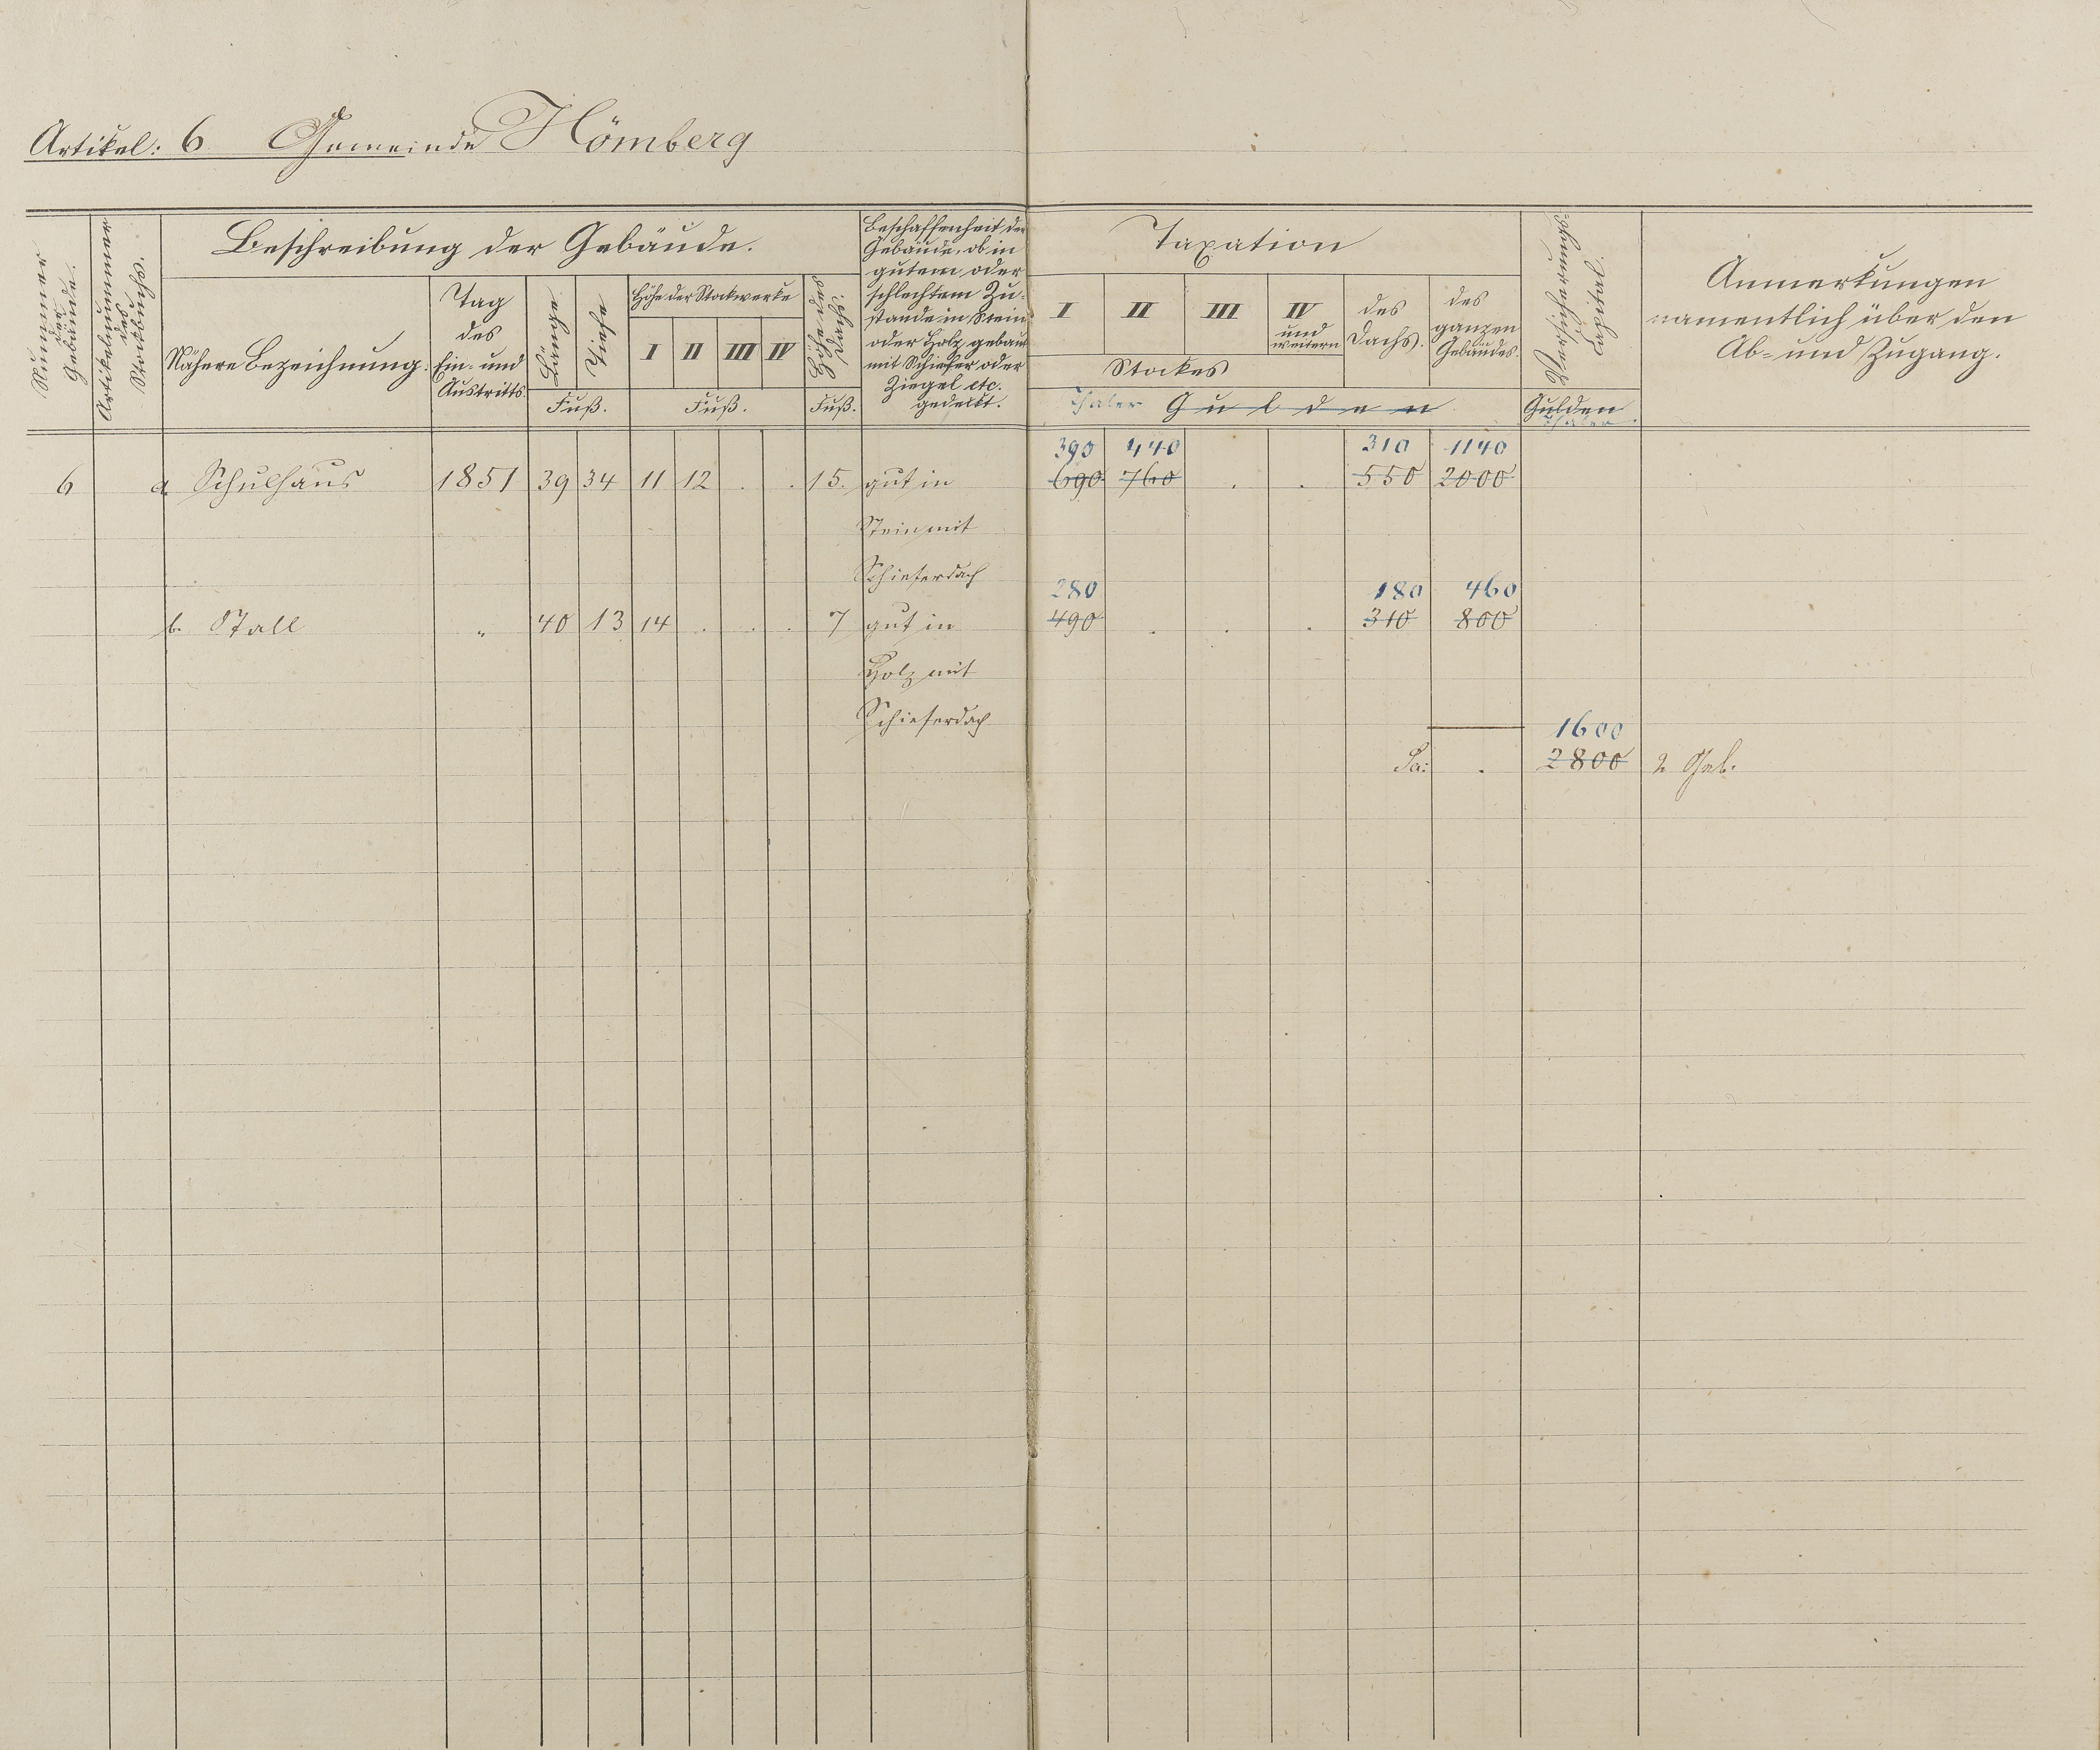 Artikel: 6 Gemeinde Hömberg
Nummer der Gebäude.
Artikelnummer des Stockbuchs.
Beschreibung der Gebäude.
Nähere Bezeichnung.
Tag des Ein- und Austritts.
Länge
Tiefe
Fuß.
Höhe der Stockwerke
I II III IV
Fuß.
Höhe des Dachs.
Fuß.
Beschaffenheit der
Gebäude, ob in
gutem oder
schlechtem Zu-
stande in Stein
oder Holz gebaut
mit Schiefer oder
Ziegel etc.
gedeckt.
Taxation
I II III IV und weitern
Stockes
des Dachs.
des ganzen Gebäudes.
Thaler Gulden
Versicherungs-
Capital.
Gulden
Thaler.
Anmerkungen
namentlich über den
Ab- und Zugang.
390 440 310 1140
6 a Schulhaus 1851 39 34 11 12 . . 15. gut in 690 760 . . 550 2000
Stein mit
Schieferdach
280 180 460
b. Stall " 40 13 14 . . . 7 gut in 490 . . . 310 800
Holz mit
Schieferdach
1600
Sa: . 2800 2 Geb.